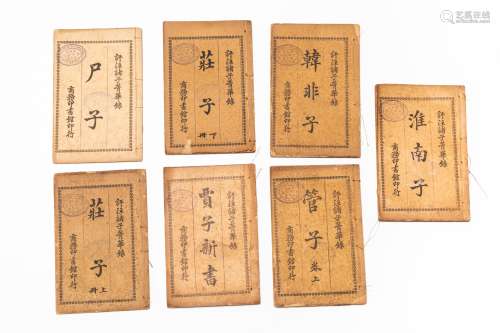 評注諸子菁華錄
尸子
商務印書館印行
評注諸子菁華錄
莊子
下冊
商務印書館印行
評注諸子菁華錄
韓非子
商務印書館印行
評注諸子菁華錄
淮南子
商務印書館印行
評注諸子菁華錄
莊子
上冊
商務印書館印行
評注諸子菁華錄
賈子新書
商務印書館印行
評注諸子菁華錄
管子
卷上
商務印書館印行
艺狐在线
yihuu.com